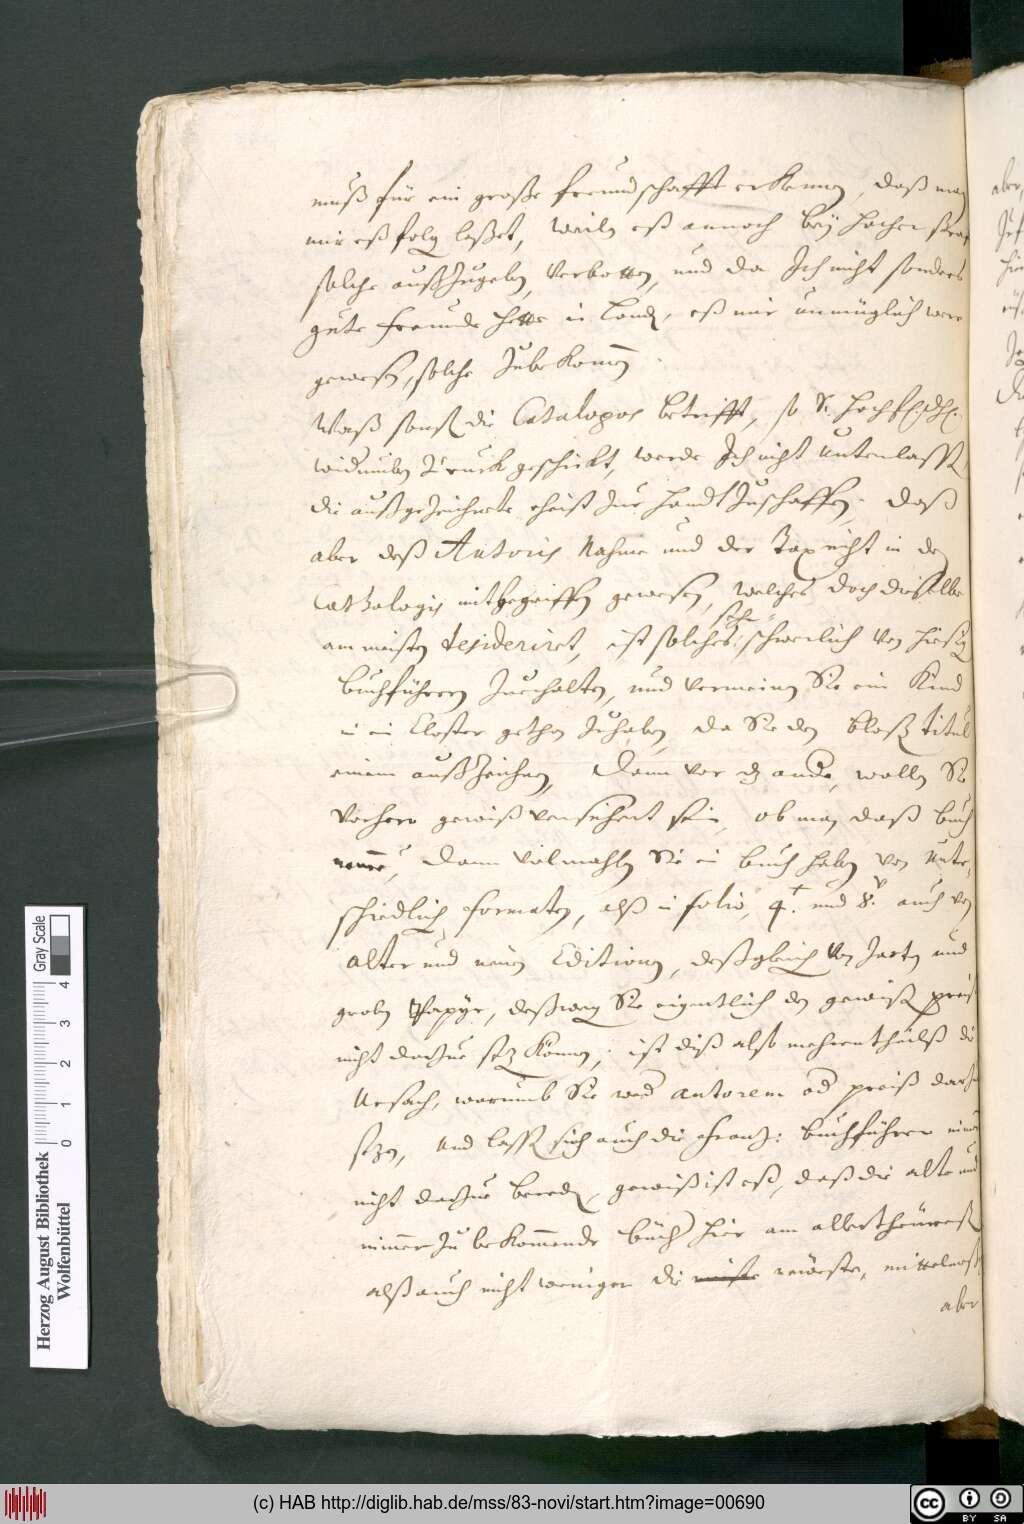 muß für ein große freundschafft erkennen, daß man
mir eß folgen laßet, weilen eß annoch bey hocher straf
solche außzugeben, verbotten, und da Ich nicht sonders
gute freunde hette in Landen, eß mir unmüglich were
gewesen, solche zubekomen
Waß sonst die Catalogos betrifft, so S. hochf. dhl.
widerumben zuruck geschickt, werde Ich nicht unterlassen
die außgezeichnete zur handt zuschaffen. daß
aber deß Autoris Nahme und der Tax nicht in den
Cathalogis mitbegriffen gewesen, welches doch dieselbe
am meisten desideriret, ist solches sehr schwerlich von hiesigen
buchführern zuerhalten, und vermeinen Sie ein Kind
in ein Closter gethon zuhaben, da Sie den bloßen titul
einem außzeichnen, dann vor das ander, wollen Sie
vorhero gewiß versichert sein, ob man daß buch
neme, dann vilmahlen Sie ein buch haben von unter-
schiedlichen formaten, alß in folio, 4t. und 8v. auch von
alter und neuen Editionen, deßgleichen von zarten und
groben Papyr, deßwegen Sie eigentlich den gewißen preis
nicht darzue setzen können, ist diß also mehrentheilß die
Ursach, warumb Sie weder autorem oder preiß darzu
setzen, und lassen sich auch die frantz: buchführer nimer
nicht darzue bereden, gewiß ist eß, daß die alte und
nimmer zu bekommende bücher hier am allertheüresten
alß auch nicht weniger die neüeste, mittelmeßig
aber
Herzog August Bibliothek
Wolfenbüttel
0 1 2 3 4
Gray Scale
(c) HAB http://diglib.hab.de/mss/83-novi/start.htm?image=00690
cc
BY SA